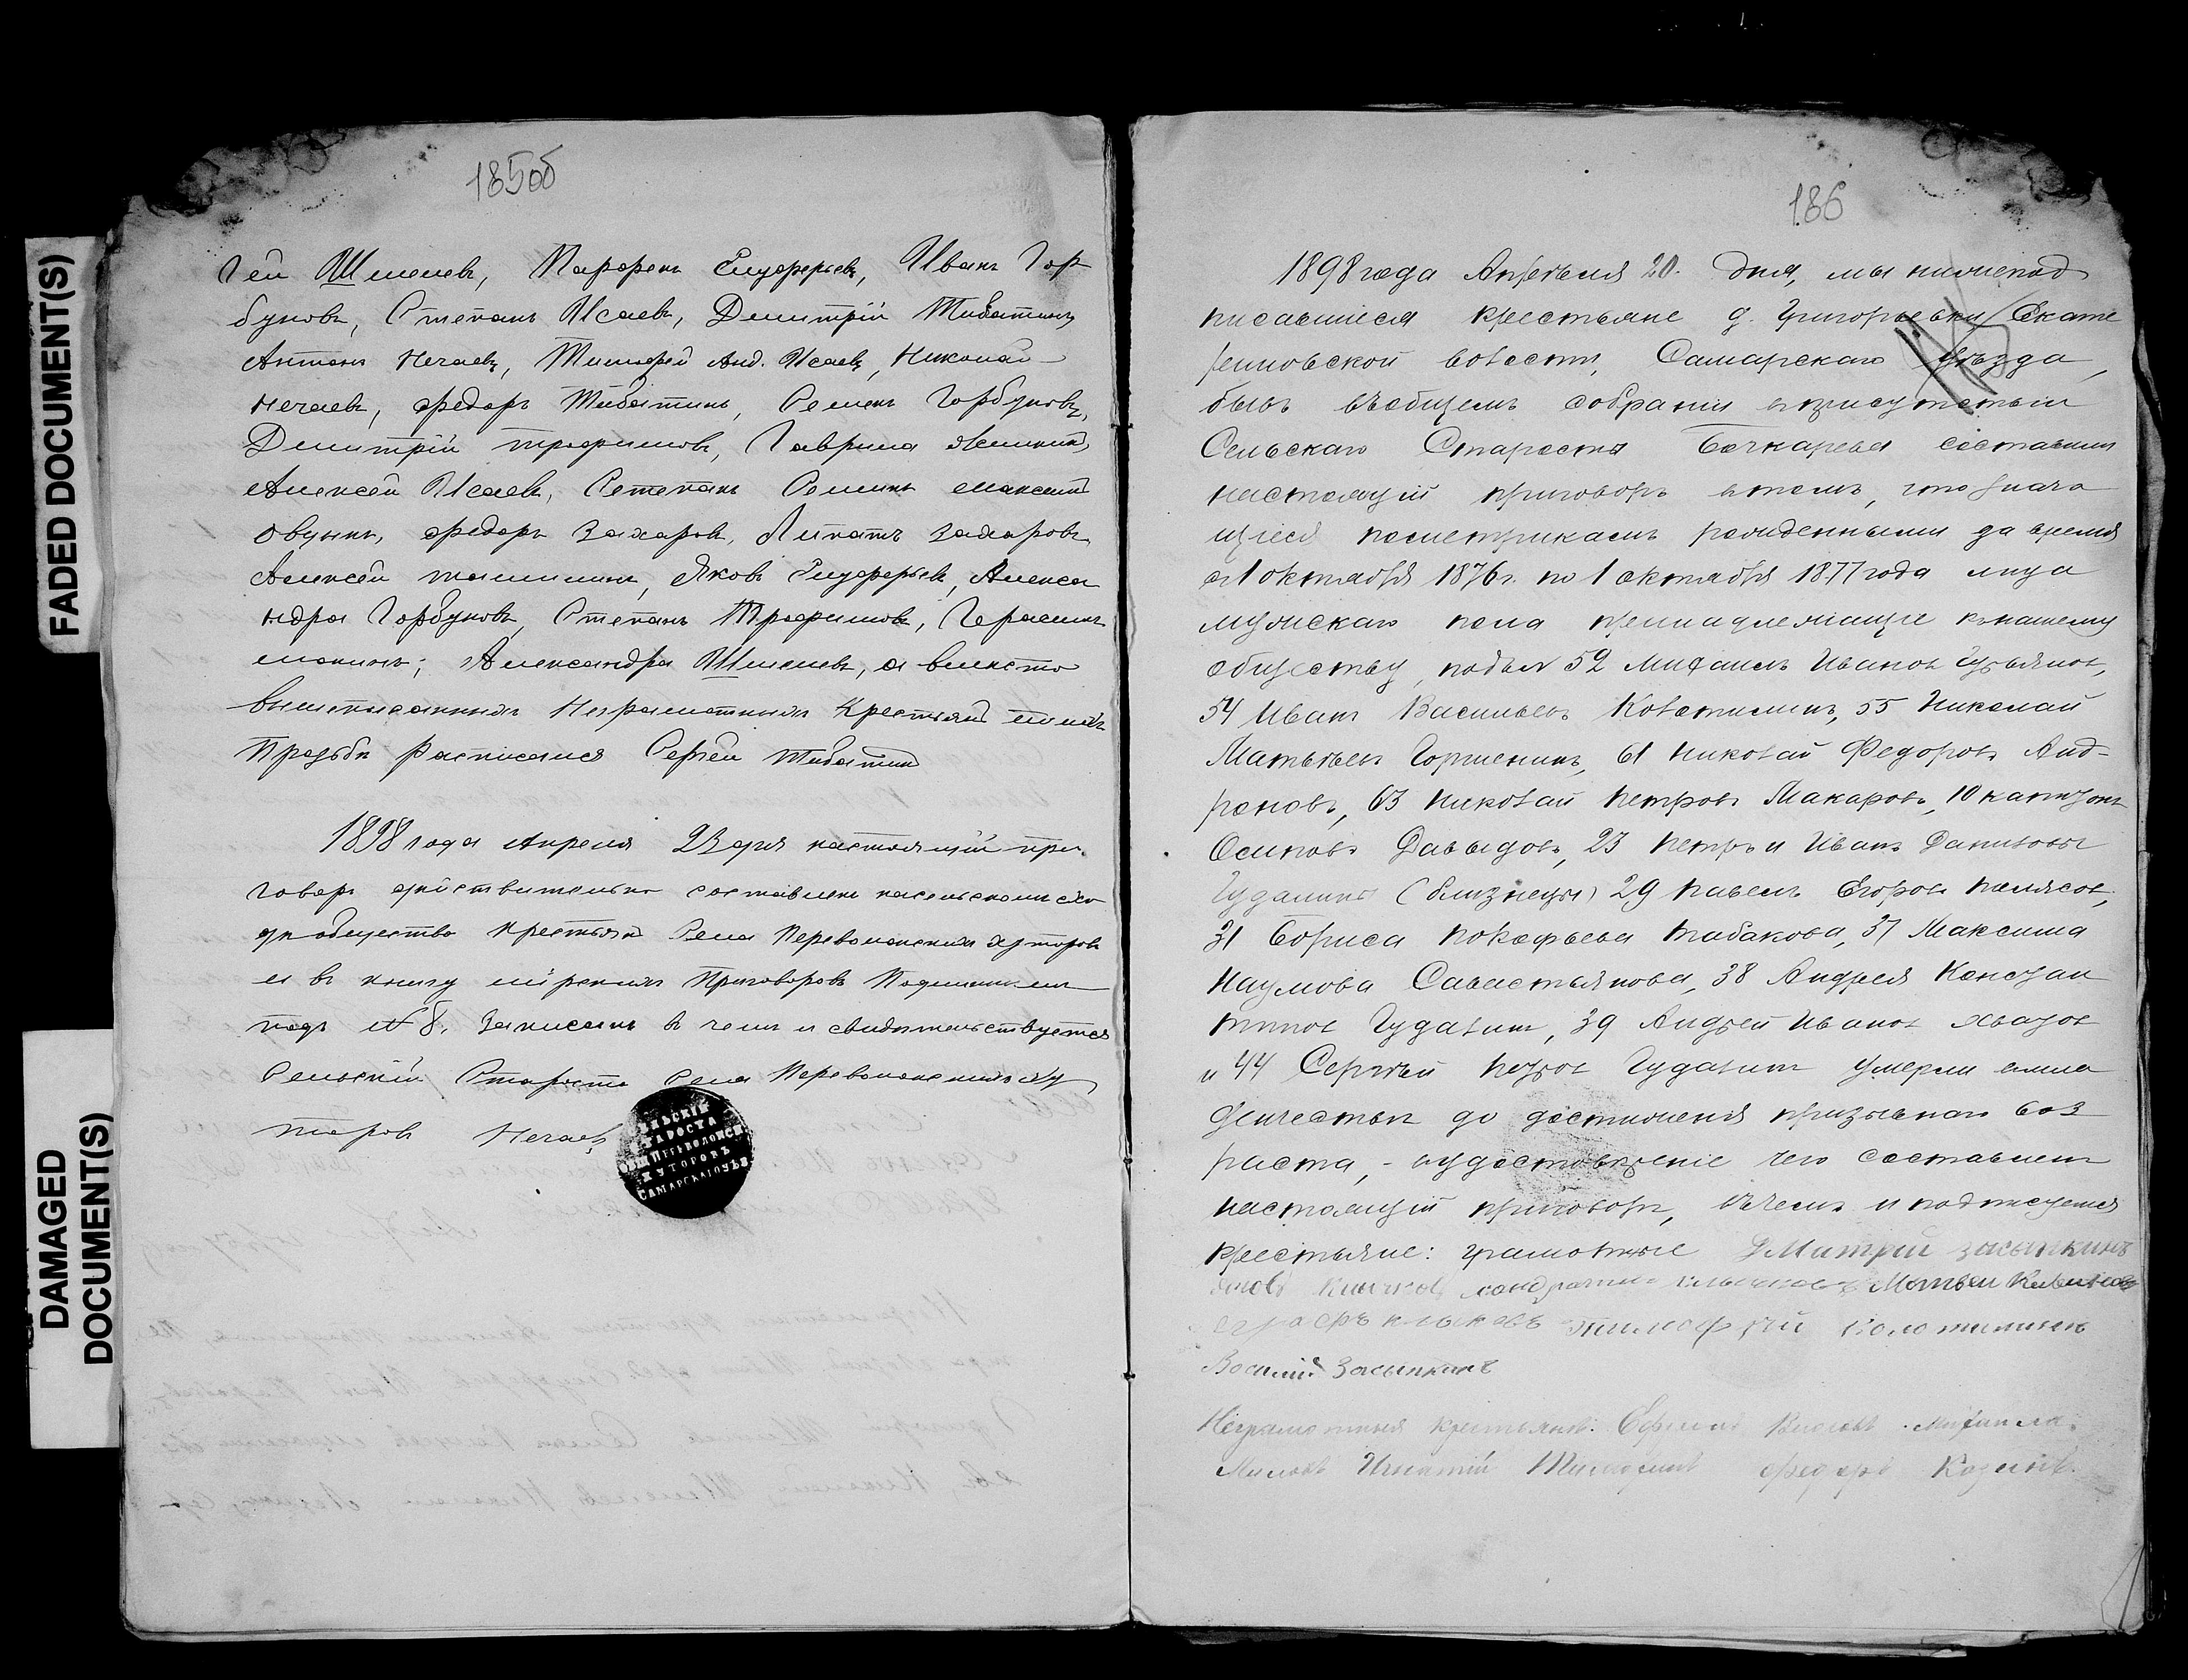 FADED DOCUMENT(S)
DAMAGED
DOCUMENT(S)
185об
гей Шмелевъ, Парфенъ Елуферьевъ, Иванъ Гор
буновъ, Степанъ Исаевъ, Дмитрій
Антонъ Нечаевъ, Тимофей Анд. Исаевъ, Николай
Нечаевъ, Федоръ Семенъ Горбуновъ,
Дмитрій Трофимовъ, Гаврила
Алексей Исаевъ, Степанъ Семинъ
Федоръ Захаровъ, Липатъ Захаровъ
Алексей Яковъ Елуферьевъ, Алекса
ндра Горбуновъ, Степанъ Трофимовъ, Герасимъ
Александра Шмелевъ, а вместо
вышеписанныхъ Неграмотныхъ Крестьянъ
Прозьбе Расписался Сергей
1898 года Апреля 23 дня настоящій при
говоръ действительно составленъ насельскомъ схо
де общества Крестьянъ Села Переволокскихъ хуторовъ
и въ книгу мірскихъ Приговоровъ
подъ № 8. Записанъ в чемъ и свидетельствуется
Сельскій Староста Села Переволокскихъ ху
торовъ Нечаевъ
СЕЛЬСКІЙ
СТАРОСТА
ОБЩ ПЕРЕВОЛОКСК
ХУТОРОВЪ
САМАРСКАГО УѢЗ
186
1898 года Апрѣля 20. дня, мы нижепод
писавшіеся крестьяне д. Григорьевки Екате
риновской волости, Самарскаго уѣзда,
бывъ въобщемъ собраніи вприсутствіи
Сельскаго Старосты Бочкарева составили
настоящій приговоръ втомъ, что знача
щіеся пометрикамъ рожденными за время
от 1 октября 1876 г. по 1 октября 1877 года лица
мужскаго пола принадлежащіе къ нашему
обществу, подъ № 52 Михаилъ Ивановъ Гурьяновъ,
54 Иванъ Васильевъ Колотилинъ, 55 Николай
Матвѣевъ Горшенинъ, 61 Николай Федоровъ Анд-
роновъ, 63 Николай Петровъ Макаровъ, 10
Осиповъ Давыдовъ, 23 Петръ и Иванъ Даниловы
Гудалины (близнецы) 29 Павелъ Егоровъ
31 Бориса Прокофьева Табакова, 37 Максима
Наумова Савастьянова, 38 Андрея Констан
тинов Гудалин, 39 Андрей Иванов
и 44 Сергѣй Петров Гудалин умерли вмла
денчествѣ до достиженія призывнаго воз
раста, - вудостовѣреніе чего составленъ
настоящій приговоръ, въчемъ и подписуемся
крестьяне: грамотные Дмитрій Засыпкинъ
Яковъ Матвеи
клыковъ Тимофѣй Колотилинъ
Василій Засыпкинъ
Неграмотныя крестьяне: Ефимъ Михаила
Игнатій Федоръ